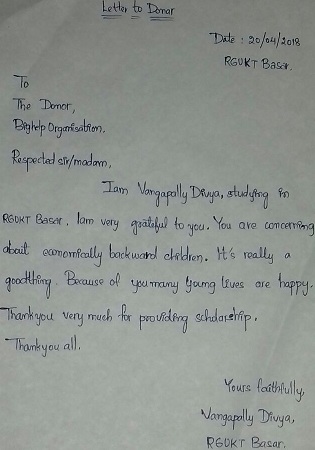 Letter to Donar
Date : 20/04/2018
RGUKT Basar.
To
The Donor,
Bighelp Organisation.
Respected sir/madam,
Iam Vangapally Divya, studying in
RGUKT Basar. Iam very grateful to you. You are concerning
about economically backward children. It's really a
goodthing. Because of you many young lives are happy.
Thankyou very much for providing scholarship.
Thankyou all.
Yours faithfully,
Vangapally Divya,
RGUKT Basar.